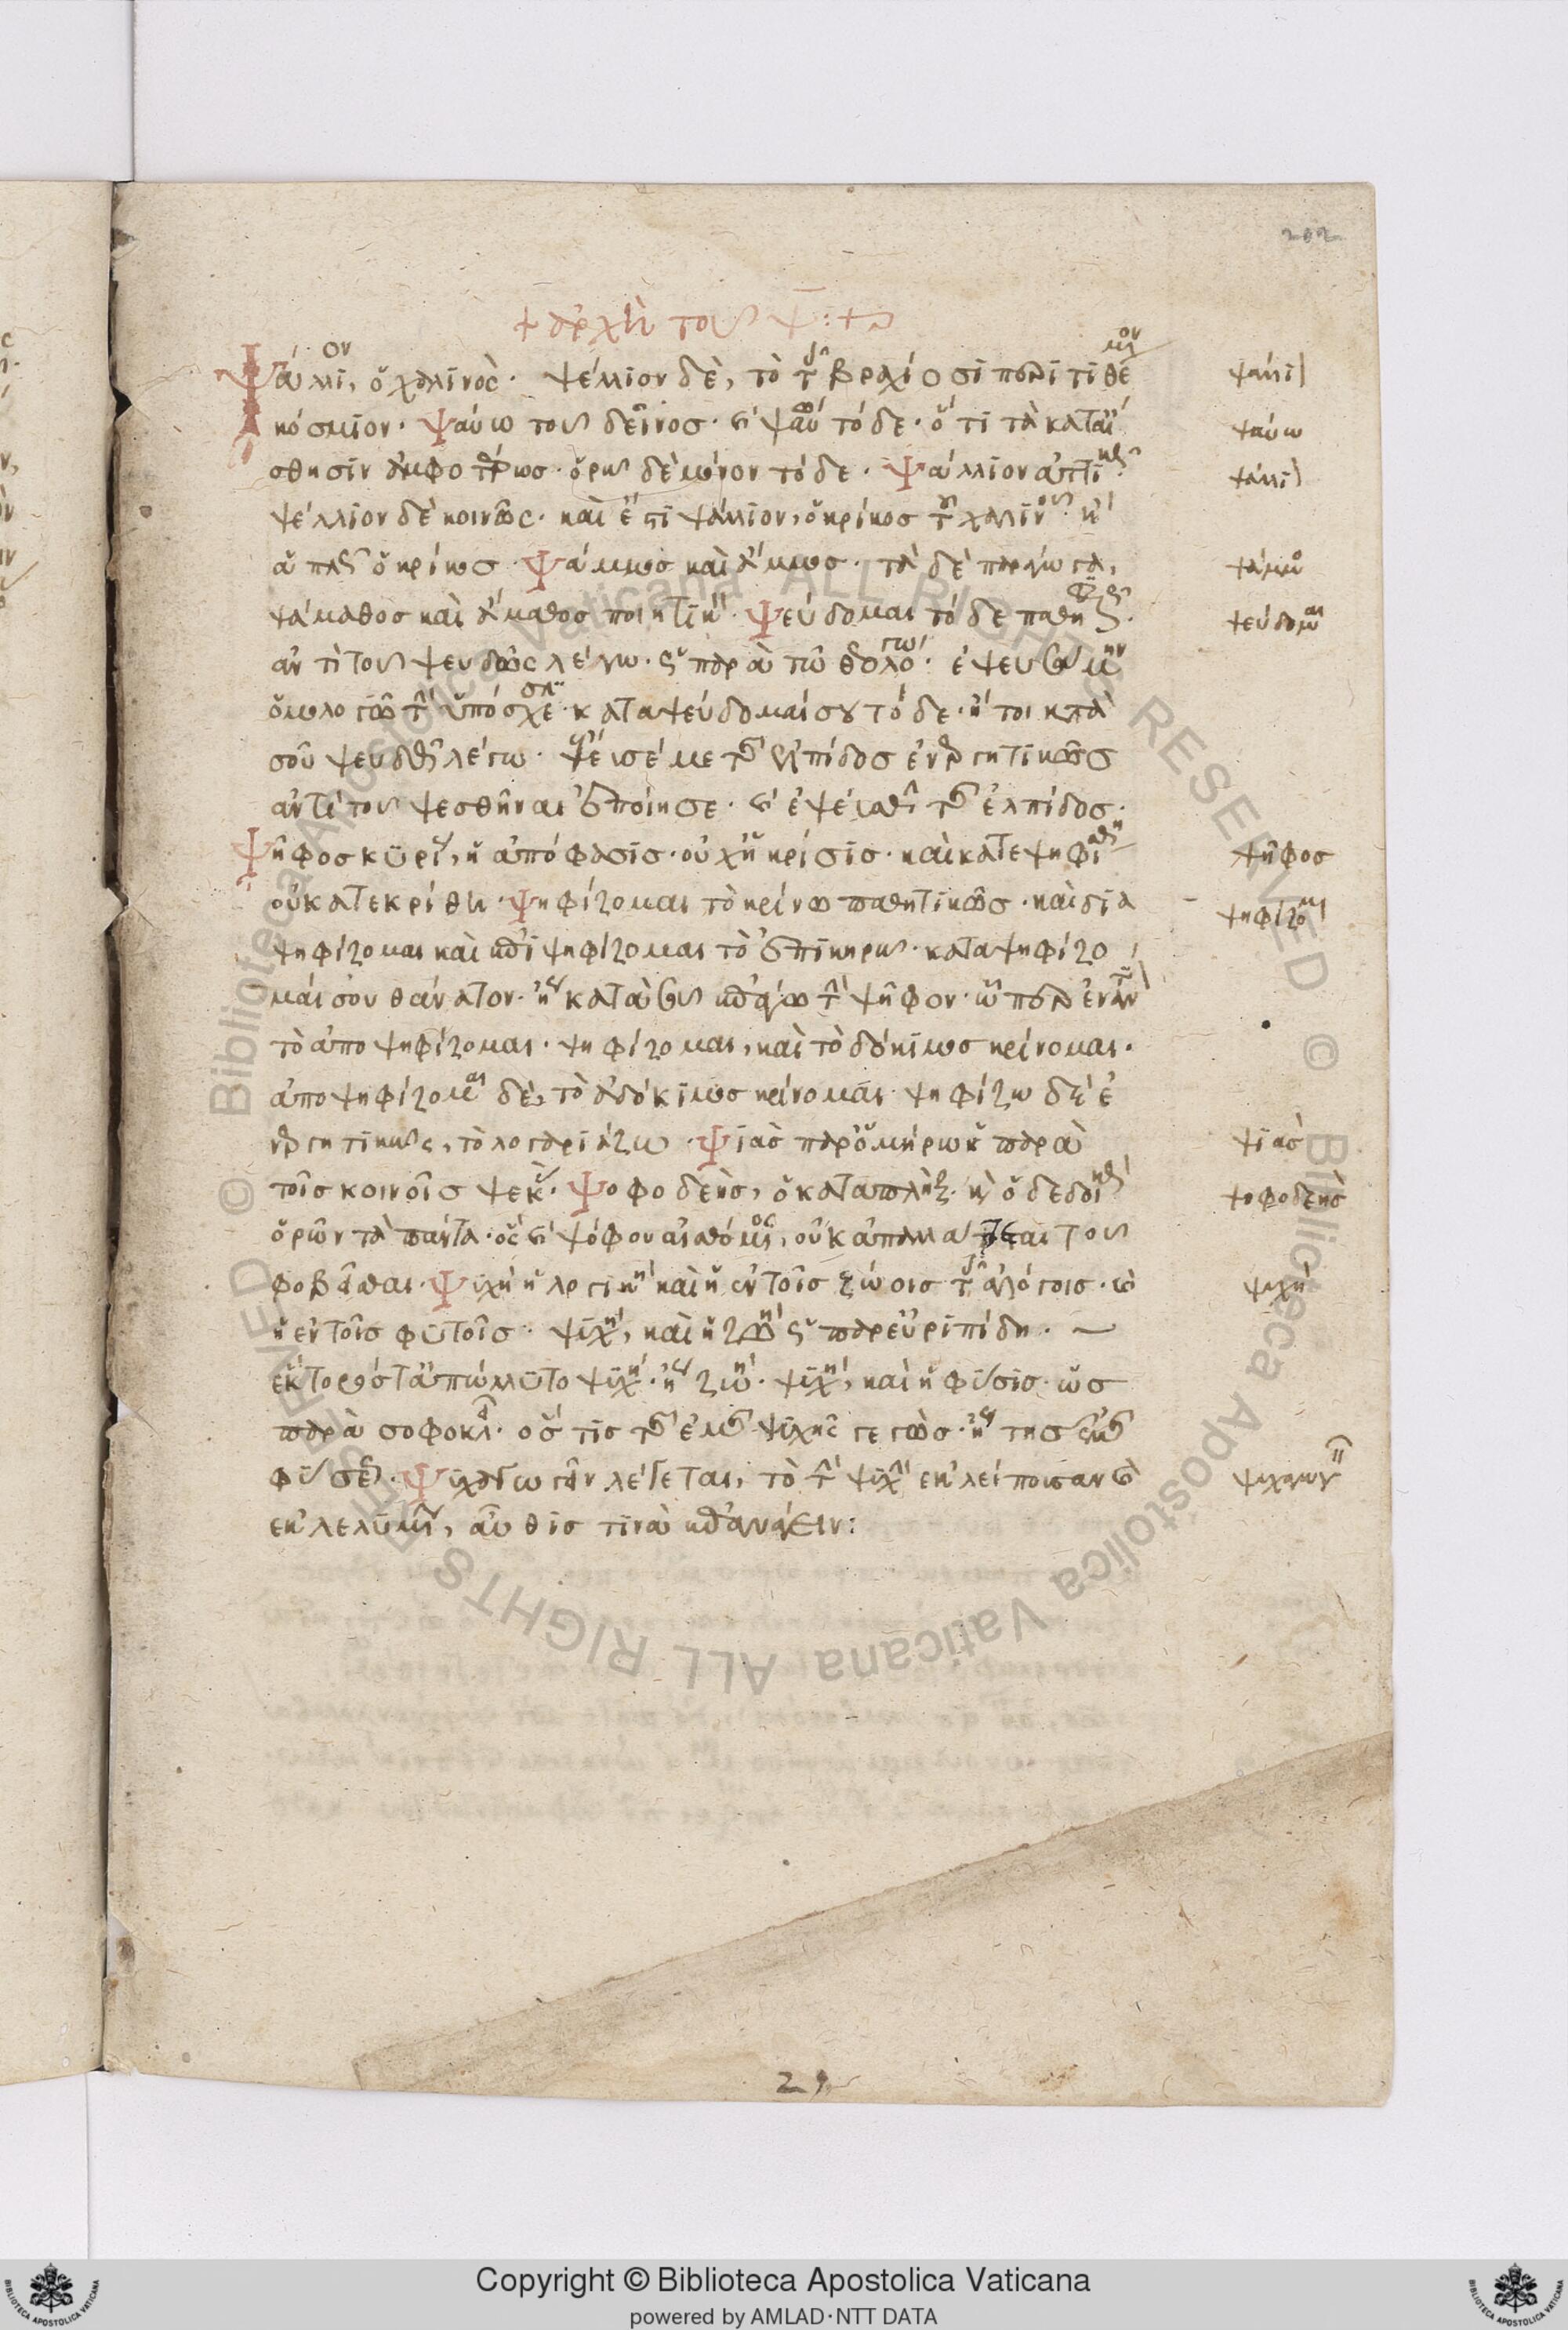 202
+ ἀρχὴ τοῦ ψ: +
Ψάλλιον, ὁ χαλινός. ψέλλιον δὲ, τὸ τοῖς βραχίοσι περιτιθέμενον
κόσμιον. Ψαύω τοῦ δεῖνος. καὶ ψαύω τόδε. ὅτι τὰ κατ' αἴ
σθησιν ἀμφοτέρως. ὁρῶ δὲ μόνον τόδε. Ψάλλιον ἀττικῶς
ψέλλιον δὲ κοινῶς. καὶ ἔστι ψάλλιον, ὁ κρίκος τοῦ χαλινοῦ. ἢ
ἁπλῶς ὁ κρίκος. Ψάμμος καὶ ἄμμος. τὰ δὲ παράγωγα,
ψάμαθος καὶ ἄμαθος ποιητικά. Ψεύδομαι τόδε παθητικῶς
ἀντὶ τοῦ ψευδῶς λέγω. ὡς παρὰ τῷ θεολόγω. ἐψευσάμην
ὁμολογῶ τὴν ὑπόσχεσιν. καταψεύδομαί σου τόδε. ἤτοι κατὰ
σοῦ ψευδῆ λέγω. ψεύσέ με τῆς ἐλπίδος ἐνεργητικῶς
ἀντὶ τοῦ ψεσθῆναι ἐποίησε. καὶ ἐψεύσθην τῆς ἐλπίδος.
Ψῆφος κυρίως, ἡ ἀπόφασις. οὐχ ἡ κρίσις. καὶ κατεψηφίσθη
οὐ κατεκρίθη. Ψηφίζομαι τὸ κρίνω παθητικῶς. καὶ δια
ψηφίζομαι καὶ ἐπιψηφίζομαι τὸ ἐπικυρῶ. καταψηφίζο
μαί σου θάνατον. ἢ κατὰ σοῦ τὴν ψῆφον. ὥσπερ ἐναντίον
τὸ ἀποψηφίζομαι. ψηφίζομαι, καὶ τὸ δόκιμος κρίνομαι.
ἀποψηφίζομαι δὲ, τὸ ἀδόκιμος κρίνομαι. ψηφίζω δὲ ἐ
νεργητικῶς, τὸ λογαριάζω. Ψιὰς παρ' ὁμήρω ἡ παρὰ
τοῖς κοινοῖς ψεκάς. Ψοφοδεὴς, ὁ καταπλὴξ. καὶ ὁ δεδοικὼς
ὁρῶν τὰ πάντα. ὃς καὶ ψόφου αἰσθόμενος, οὐκ ἀπαλλάττεται τοῦ
φοβεῖσθαι. Ψυχὴ ἡ λογικὴ καὶ ἡ ἐν τοῖς ζώοις τοῖς ἀλόγοις. καὶ
ἡ ἐν τοῖς φυτοῖς. ψυχὴ, καὶ ἡ ζωὴ ὡς παρ' εὐριπίδη. —
ἕκτορός τ' ἀπώλλυτο ψυχή. ἢ ζωή. ψυχὴ, καὶ ἡ φύσις. ὡς
παρὰ σοφοκλεῖ. ὅστις τῆς ἐμῆς ψυχῆς γεγώς. ἢ τῆς ἐμῆς
φύσεως. Ψυχαγωγεῖν λέγεται, τὸ τὴν ψυχὴν ἐκλείπουσαν καὶ
ἐκλελυμένην, αὖθις τινὰ ἐπανάγειν:
ψάλλιον
ψαύω
ψάλλιον
ψάμμος
ψεύδομαι
ψῆφος
ψηφίζομαι
ψιάς
ψοφοδεὴς
ψυχή
ψυχαγωγεῖν
29
Copyright © Biblioteca Apostolica Vaticana
powered by AMLAD·NTT DATA
© Biblioteca Apostolica Vaticana ALL RIGHTS RESERVED © Biblioteca Apostolica Vaticana ALL RIGHTS RESERVED